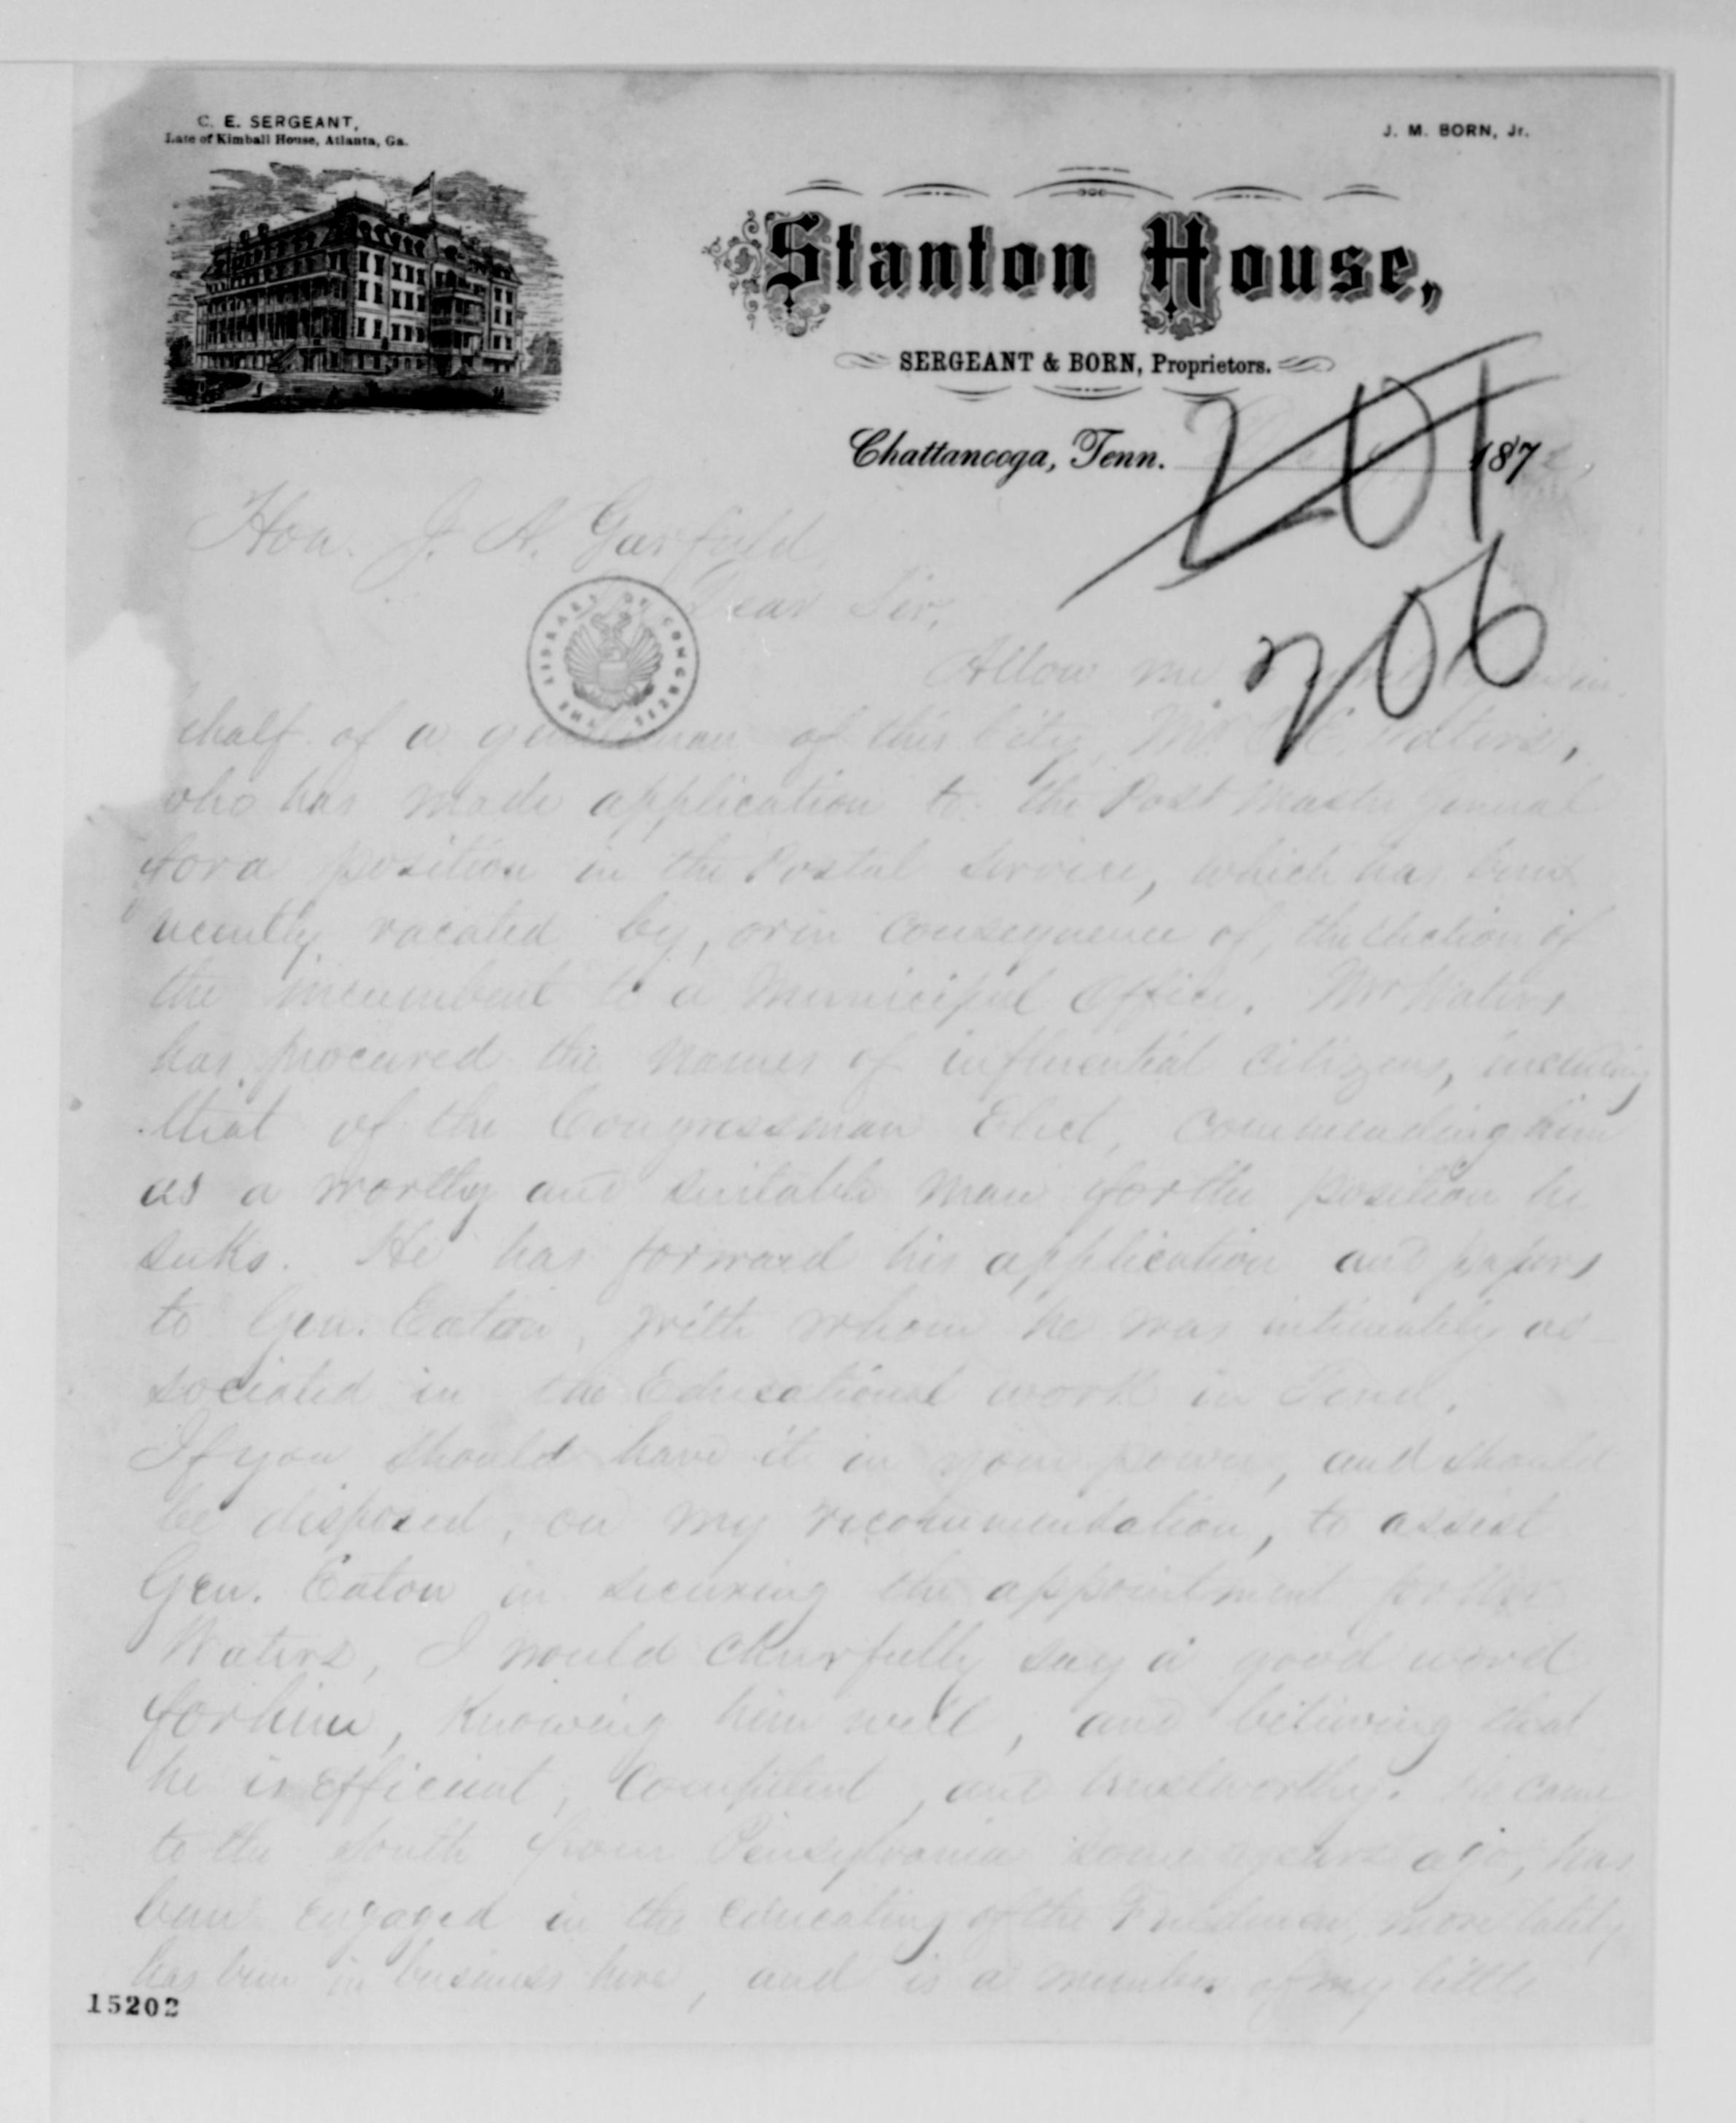 C. E. SERGEANT,
Late of Kimball House, Atlanta, Ga.
J. M. BORN, Jr.
Stanton House,
SERGEANT & BORN, Proprietors.
Chattanooga, Tenn. 187
201
206
Hon. J. A. Garfield
Dear Sir,
THE LIBRARY OF CONGRESS
Allow me
ehalf of a gentleman of this City, Mr. Waters,
who has made application to the Post Master General
for a position in the Postal service, which has been
recently vacated by, or in consequence of, the election of
the incumbent to a Municipal Office. Mr Waters
has procured the names of influential citizens, including
that of the Congressman Elect, commending him
as a worthy and suitable man for the position he
seeks. He has forward his application and papers
to Gen. Eaton, with whom he was intimately as-
sociated in the Educational work in Tenn.
If you should have it in your power, and should
be disposed, on my recommendation, to assist
Gen. Eaton in securing the appointment for Mr
Waters, I would cheerfully say a good word
for him, knowing him well, and believing that
he is efficient, competent, and trustworthy. He came
to the South from Pensylvania some years ago, has
been engaged in the educating of the Freedmen, more lately
has been in business here, and is a member of my little
15202